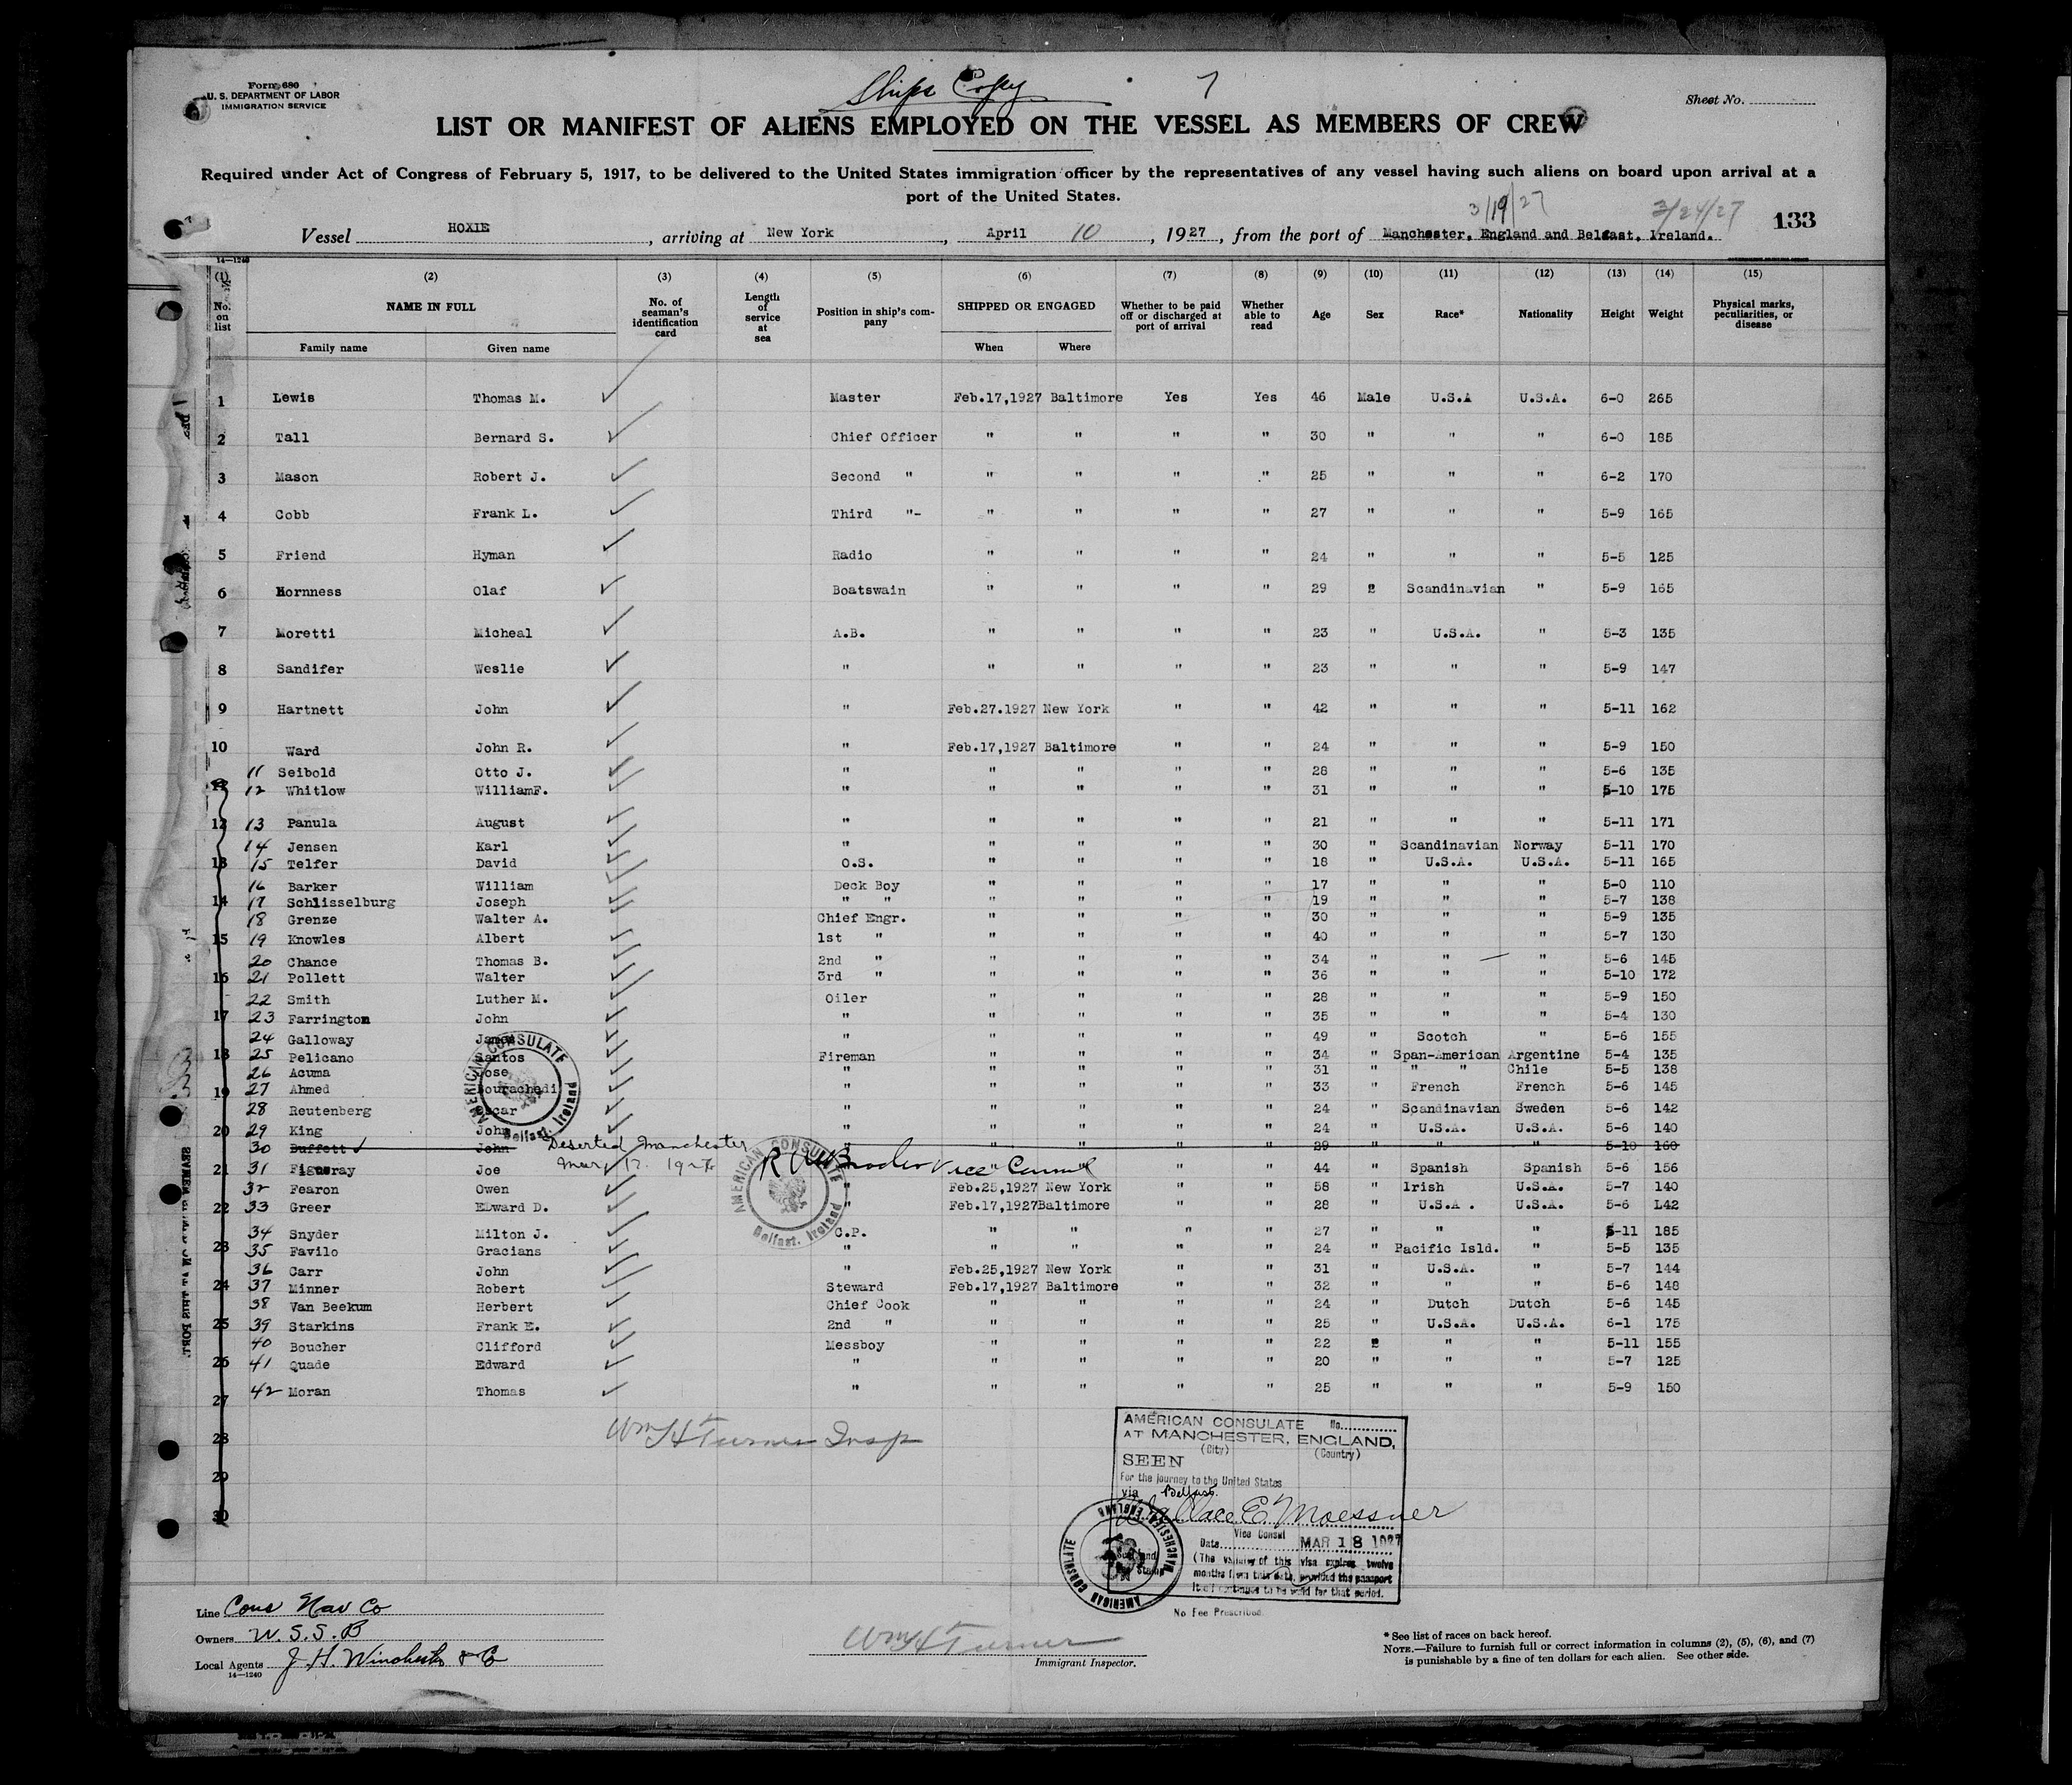 Form 680
U. S. DEPARTMENT OF LABOR
IMMIGRATION SERVICE
Ships Copy
7
Sheet No.
LIST OR MANIFEST OF ALIENS EMPLOYED ON THE VESSEL AS MEMBERS OF CREW
Required under Act of Congress of February 5, 1917, to be delivered to the United States immigration officer by the representatives of any vessel having such aliens on board upon arrival at a
port of the United States.
3/19/27 3/24/27 133
Vessel HOXIE, arriving at New York, April 10, 1927, from the port of Manchester, England and Belfast, Ireland.
14—1240
(1) (2) (3) (4) (5) (6) (7) (8) (9) (10) (11) (12) (13) (14) (15)
No. on list NAME IN FULL No. of seaman's identification card Length of service at sea Position in ship's company SHIPPED OR ENGAGED Whether to be paid off or discharged at port of arrival Whether able to read Age Sex Race* Nationality Height Weight Physical marks, peculiarities, or disease
Family name Given name When Where
1 Lewis Thomas M. Master Feb.17,1927 Baltimore Yes Yes 46 Male U.S.A U.S.A. 6-0 265
2 Tall Bernard S. Chief Officer " " " " 30 " " " 6-0 185
3 Mason Robert J. Second " " " " " 25 " " " 6-2 170
4 Cobb Frank L. Third "- " " " " 27 " " " 5-9 165
5 Friend Hyman Radio " " " " 24 " " " 5-5 125
6 Hornness Olaf Boatswain " " " " 29 " Scandinavian " 5-9 165
7 Moretti Micheal A.B. " " " " 23 " U.S.A. " 5-3 135
8 Sandifer Weslie " " " " " 23 " " " 5-9 147
9 Hartnett John " Feb.27.1927 New York " " 42 " " " 5-11 162
10 Ward John R. " Feb.17,1927 Baltimore " " 24 " " " 5-9 150
11 Seibold Otto J. " " " " " 28 " " " 5-6 135
12 Whitlow WilliamF. " " " " " 31 " " " 5-10 175
12 13 Panula August " " " " " 21 " " " 5-11 171
14 Jensen Karl " " " " " 30 " Scandinavian Norway 5-11 170
13 15 Telfer David O.S. " " " " 18 " U.S.A. U.S.A. 5-11 165
16 Barker William Deck Boy " " " " 17 " " " 5-0 110
14 17 Schlisselburg Joseph " " " " " " 19 " " " 5-7 138
18 Grenze Walter A. Chief Engr. " " " " 30 " " " 5-9 135
15 19 Knowles Albert 1st " " " " " 40 " " " 5-7 130
20 Chance Thomas B. 2nd " " " " " 34 " " " 5-6 145
16 21 Pollett Walter 3rd " " " " " 36 " " " 5-10 172
22 Smith Luther M. Oiler " " " " 28 " " " 5-9 150
17 23 Farrington John " " " " " 35 " " " 5-4 130
24 Galloway James " " " " " 49 " Scotch " 5-6 155
18 25 Pelicano Santos Fireman " " " " 34 " Span-American Argentine 5-4 135
26 Acuma Jose " " " " " 31 " " " Chile 5-5 138
19 27 Ahmed Bourachedi " " " " " 33 " French French 5-6 145
28 Reutenberg Oscar " " " " " 24 " Scandinavian Sweden 5-6 142
20 29 King John " " " " " 24 " U.S.A. U.S.A. 5-6 140
30 Buffett John Deserted Manchester " " " " " 29 " " " 5-10 160
Mar. 17. 1927 Vice Consul
21 31 Figueray Joe " " " 44 " Spanish Spanish 5-6 156
32 Fearon Owen " Feb.25,1927 New York " " 58 " Irish U.S.A. 5-7 140
22 33 Greer Edward D. " Feb.17,1927Baltimore " " 28 " U.S.A . U.S.A. 5-6 L42
34 Snyder Milton J. C.P. " " " " 27 " " " 5-11 185
23 35 Favilo Gracians " " " " " 24 " Pacific Isld. " 5-5 135
36 Carr John " Feb.25,1927 New York " " 31 " U.S.A. " 5-7 144
24 37 Minner Robert Steward Feb.17,1927 Baltimore " " 32 " " " 5-6 148
38 Van Beekum Herbert Chief Cook " " " " 24 " Dutch Dutch 5-6 145
25 39 Starkins Frank E. 2nd " " " " " 25 " U.S.A. U.S.A. 6-1 175
40 Boucher Clifford Messboy " " " " 22 " " " 5-11 155
26 41 Quade Edward " " " " " 20 " " " 5-7 125
27 42 Moran Thomas " " " " " 25 " " " 5-9 150
28
29
30
AMERICAN CONSULATE Belfast, Ireland
AMERICAN CONSULATE Belfast, Ireland
Wm H Turner Insp
AMERICAN CONSULATE No.
AT MANCHESTER, ENGLAND,
(City) (Country)
SEEN
For the journey to the United States
via Belfast.
Wallace E. Moessner
Vice Consul
Date MAR 18 1927
(The validity of this visa expires twelve
months from this date, provided the passport
itself continues to be valid for that period.
AMERICAN CONSULATE MANCHESTER ENGLAND
No Fee Prescribed.
Line Cons Nav Co
Owners W.S.S.B
Local Agents J. H. Winchester & Co
14—1240
Wm H Turner
Immigrant Inspector.
* See list of races on back hereof.
NOTE.—Failure to furnish full or correct information in columns (2), (5), (6), and (7)
is punishable by a fine of ten dollars for each alien. See other side.